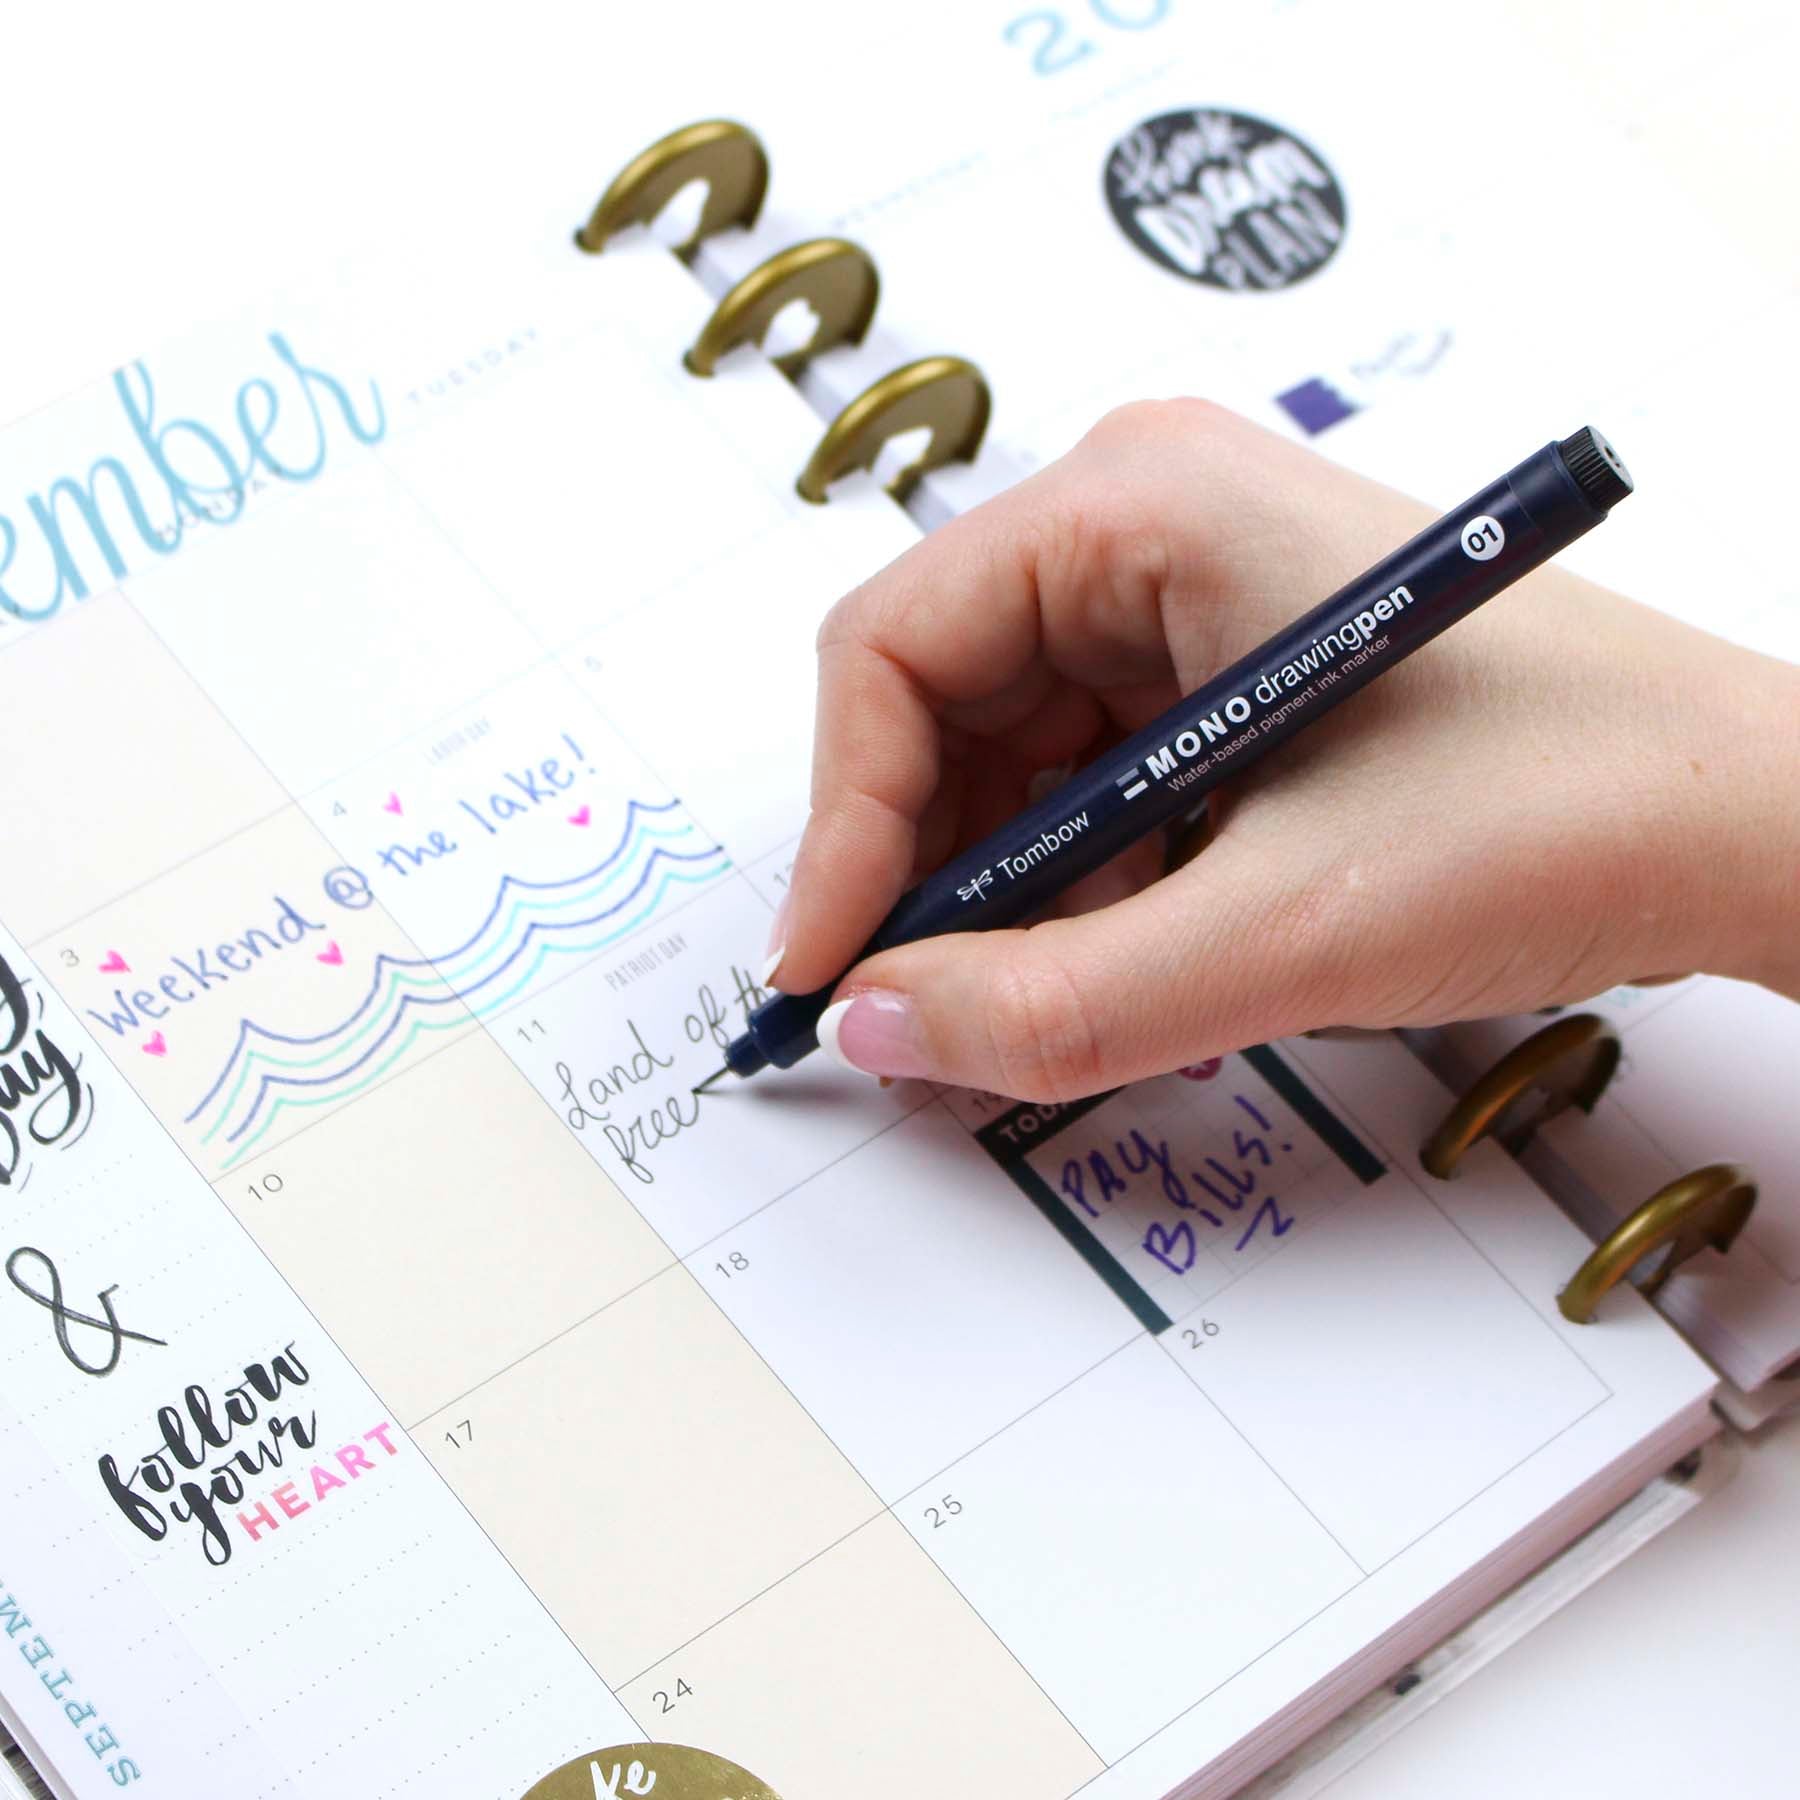 20
think
Dream
PLAN
WEDNESDAY
ember
MONDAY
TUESDAY
5
LABOR DAY
4
3
weekend @ the lake!
12
PATRIOT DAY
11
Land of th
free
01
MONO drawingpen
Water-based pigment ink marker
Tombow
14
TODA
PAY
BILLS!
10
18
26
&
follow
your
HEART
17
25
24
SEPTEM
ke